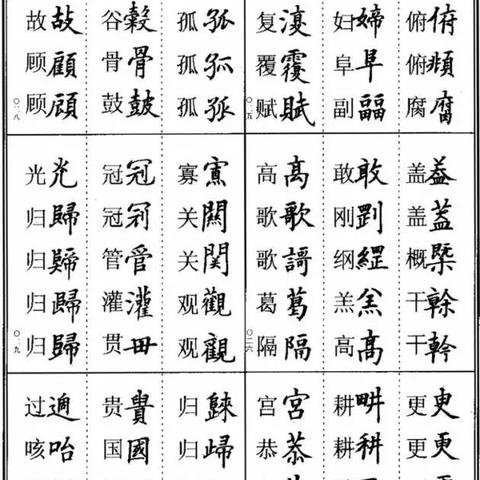 俯俯
俯頫
腐腐
妇婦
阜阜
副副
复復
覆覆
赋賦
盖盖
盖蓋
概槩
干榦
干幹
敢敢
刚剛
纲綱
羔羔
高髙
高高
歌歌
歌謌
葛葛
隔隔
〇二六
更更
更更
耕畊
耕耕
宫宮
恭恭
孤孤
孤孤
孤孤
谷穀
骨骨
鼓皷
故故
顾顧
顾顧
寡寡
关關
关関
观觀
观觀
冠冠
冠冠
管管
灌灌
贯毌
光光
归歸
归歸
归歸
归歸
归歸
归歸
贵貴
国國
过過
咳咍